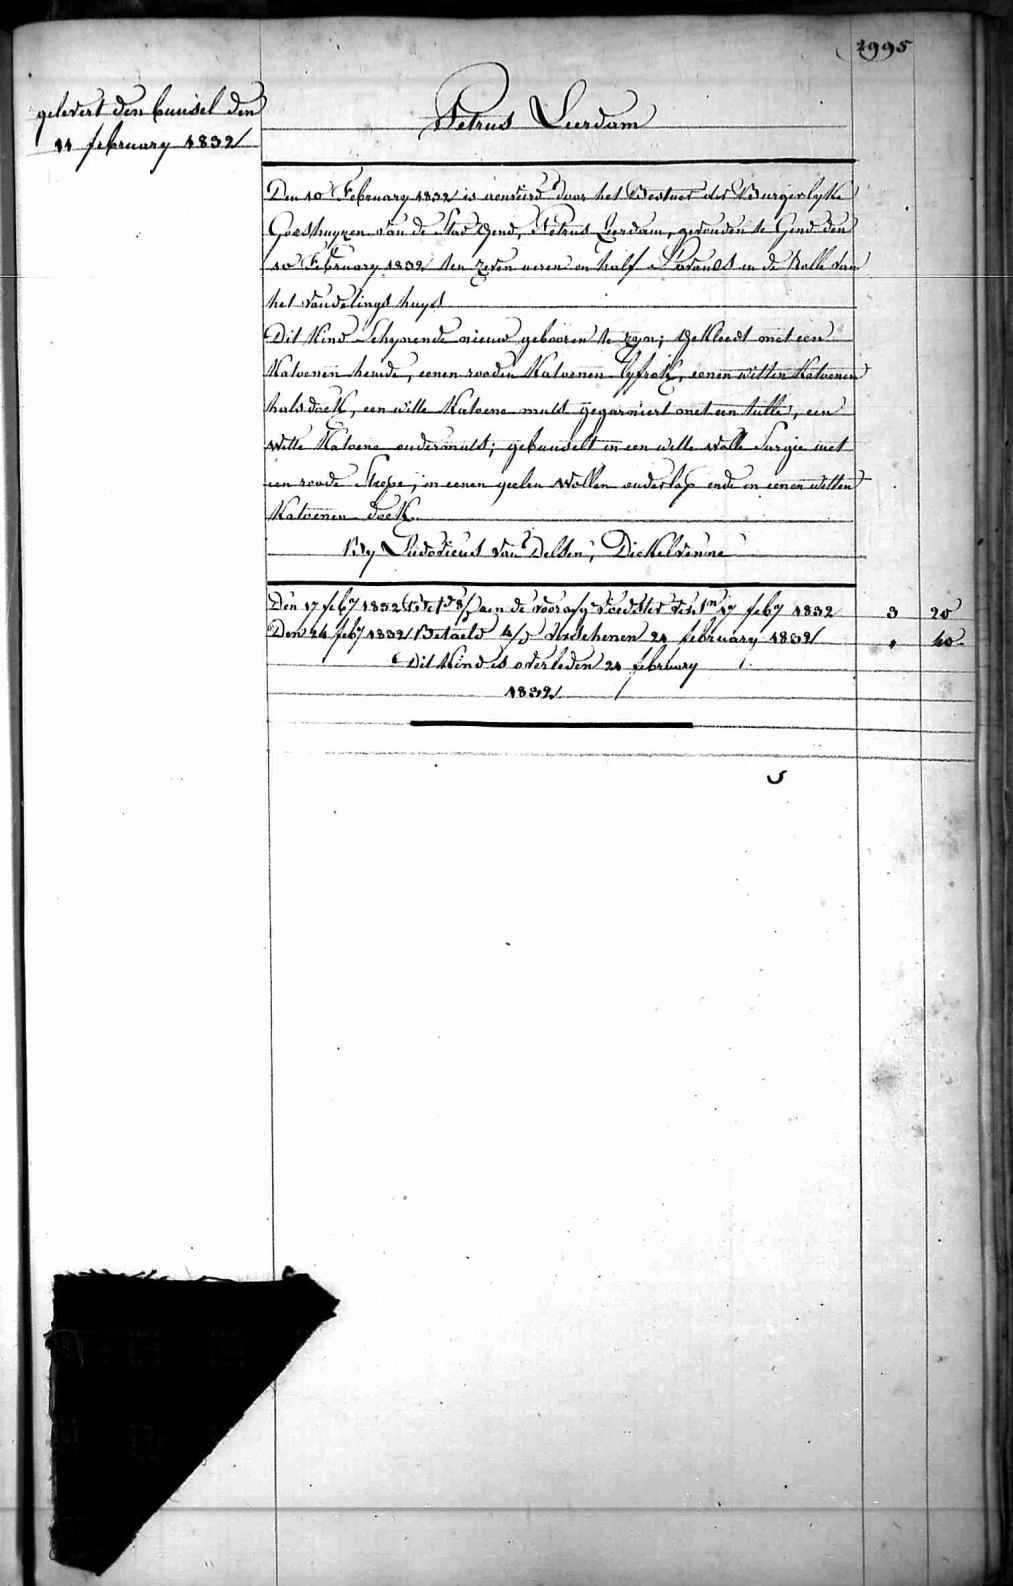 2995
gelevert den bunsel den
11 february 1832
Petrus Leerdam
Den 10 February 1832 is aenveird door het Bestuer der Burgerlyke
Goeshuyzen van de Stad Gend, Petrus Leerdam, gevonden te Gend den
10 February 1832 ten zeven uren en half s'avonds in de Rolle van
het vondelings huys
Dit Kind Schynende nieuw gebooren te zyn; Gekleedt met een
Katoenen hemde, eenen rooden Katoenen lyfrok, eenen witten Katoenen
halsdoek, een witte Katoene muts gegarniert met een tulle, een
Witte Katoene ondermuts; gebunselt in een witte Wolle Sargie met
een roode Streepe; in eenen geelen Wollen onderlap ende in eenen witten
Katoenen doek.
By Ludovicus Van Delsen, Dickelvenne
Den 17 feby 1832 aen de voorsz Voedster 17 feby 1832 3 20
Den 24 feby 1832 Betaeld 4/ verschenen 21 february 1832 " 40
Dit Kind is overleden 21 february
1832